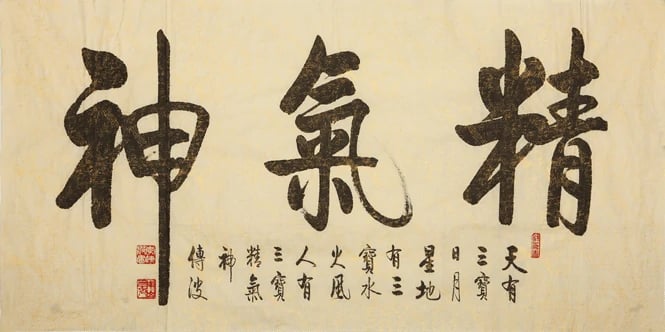 精氣神
天有
三寶
日月
星地
有三
寶水
火風
人有
三寶
精氣
神
波